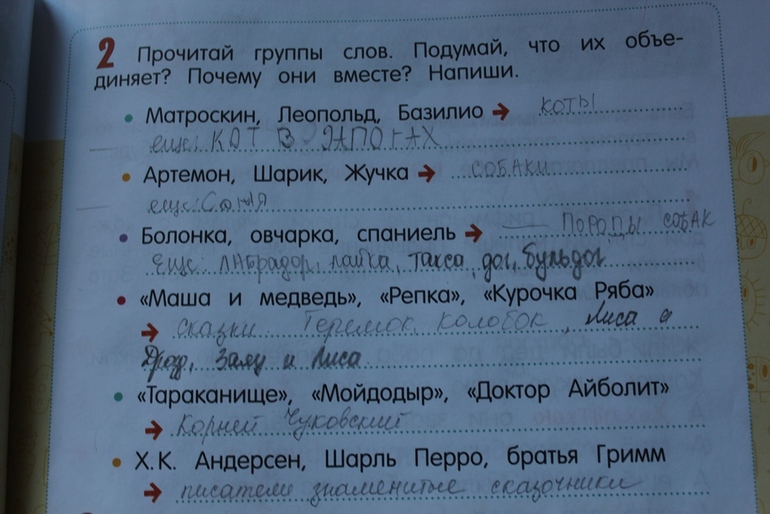 2 Прочитай группы слов. Подумай, что их объе-
диняет? Почему они вместе? Напиши.
• Матроскин, Леопольд, Базилио → коты
еще: КОТ В САПОГАХ
• Артемон, Шарик, Жучка → собаки
еще: Соня
• Болонка, овчарка, спаниель → — породы собак
Еще: лабрадор, лайка, такса, дог, бульдог
• «Маша и медведь», «Репка», «Курочка Ряба»
→ сказки Теремок, Колобок, Лиса и
Дрозд, Заяц и Лиса
• «Тараканище», «Мойдодыр», «Доктор Айболит»
→ Корней Чуковский
• Х.К. Андерсен, Шарль Перро, братья Гримм
→ писатели знаменитые сказочники